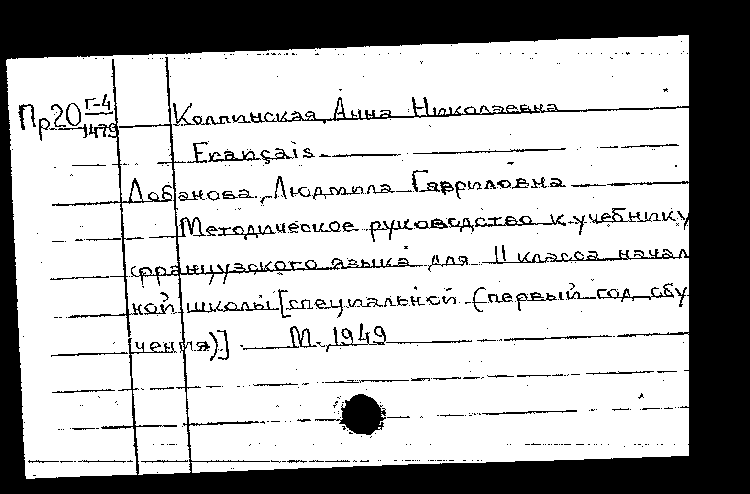 Пр20 Г-4
1479
Колпинская, Анна Николаевна
Français.
Лобанова, Людмила Гавриловна
Методическое руководство к учебнику
французского языка для II класса начал
ной школы [специальной (первый год обу
чения)]. М., 1949